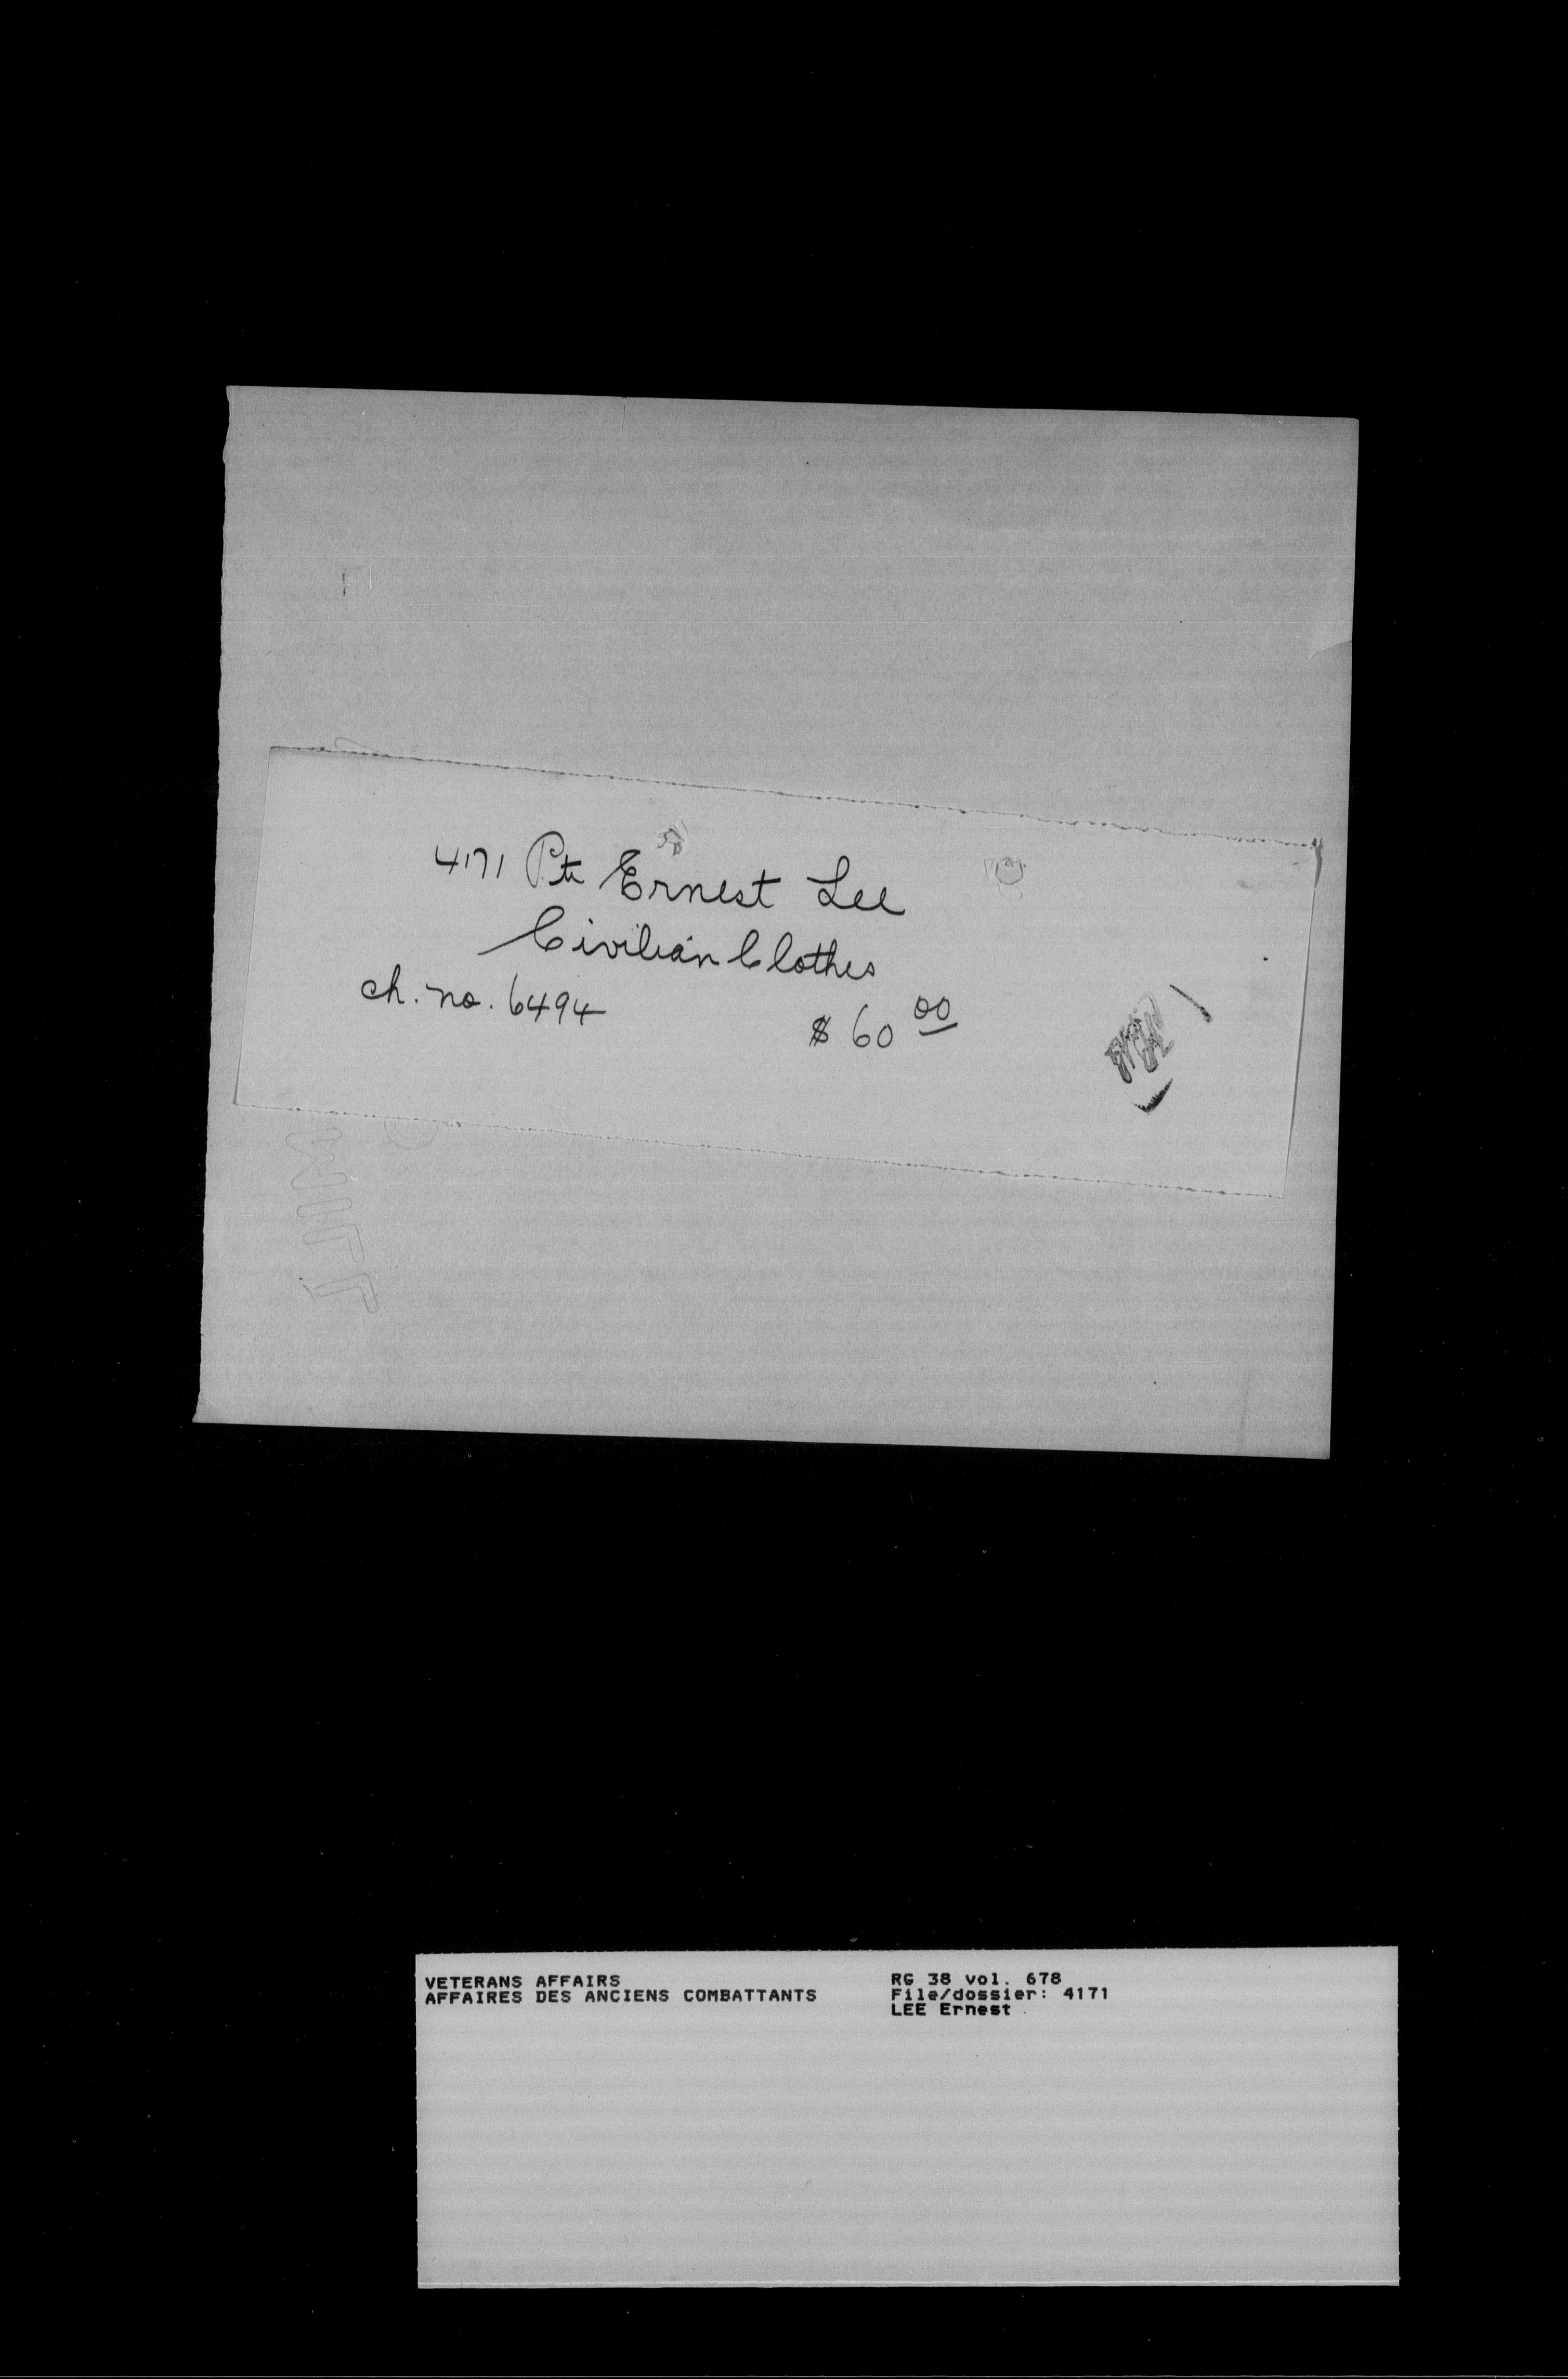 4171 Pte Ernest Lee
Civilian Clothes
ch. no. 6494
$ 60 00
VETERANS AFFAIRS
AFFAIRES DES ANCIENS COMBATTANTS
RG 38 vol. 678
File/dossier: 4171
LEE Ernest